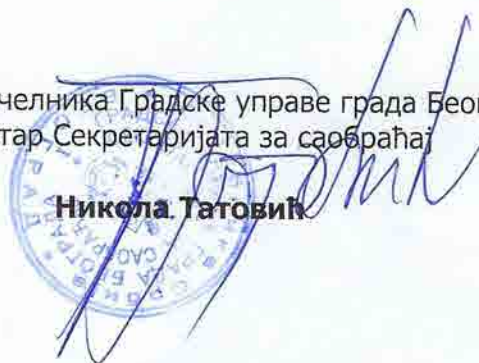 челника Градске управе града Бео
тар Секретаријата за саобраћај
Никола Татовић